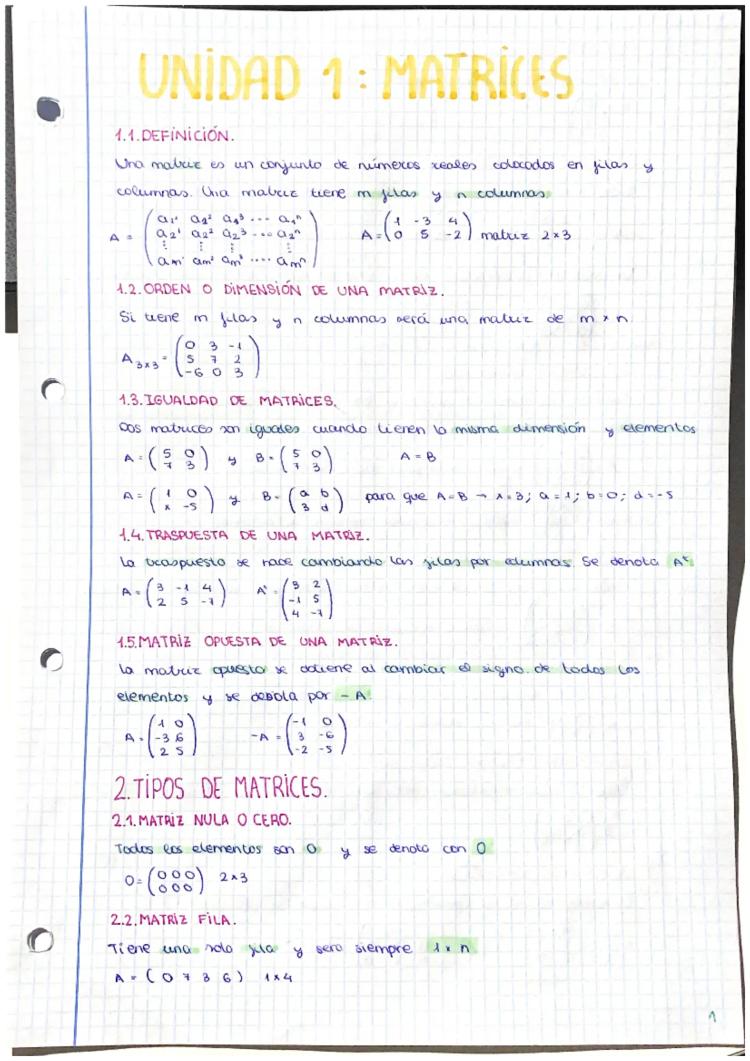 UNIDAD 1: MATRICES
1.1. DEFINICIÓN.
Una matriz es un conjunto de números reales colocados en filas y
columnas. Una matriz tiene m filas y n columnas
A = (a₁¹ a₁² a₁³ ... a₁ⁿ
a₂¹ a₂² a₂³ ... a₂ⁿ
⋮ ⋮ ⋮
aₘ¹ aₘ² aₘ³ .... aₘⁿ) A = (1 -3 4
0 5 -2) matriz 2x3
1.2. ORDEN O DIMENSIÓN DE UNA MATRIZ.
Si tiene m filas y n columnas será una matriz de m x n.
A₃ₓ₃ = (0 3 -1
5 7 2
-6 0 3)
1.3. IGUALDAD DE MATRICES.
Dos matrices son iguales cuando tienen la misma dimensión y elementos
A = (5 0
7 3) y B = (5 0
7 3) A = B
A = (1 0
x -5) y B = (a b
3 d) para que A=B → x=3; a=1; b=0; d=-5
1.4. TRASPUESTA DE UNA MATRIZ.
La traspuesta se hace cambiando las filas por columnas. Se denota Aᵗ
A = (3 -1 4
2 5 -7) Aᵗ = (3 2
-1 5
4 -7)
1.5. MATRIZ OPUESTA DE UNA MATRIZ.
La matriz opuesta se obtiene al cambiar el signo de todos los
elementos y se denota por -A
A = (1 0
-3 6
2 5) -A = (-1 0
3 -6
-2 -5)
2. TIPOS DE MATRICES.
2.1. MATRIZ NULA O CERO.
Todos los elementos son 0 y se denota con 0
0 = (0 0 0
0 0 0) 2x3
2.2. MATRIZ FILA.
Tiene una sola fila y será siempre 1 x n
A = (0 7 3 6) 1x4
1